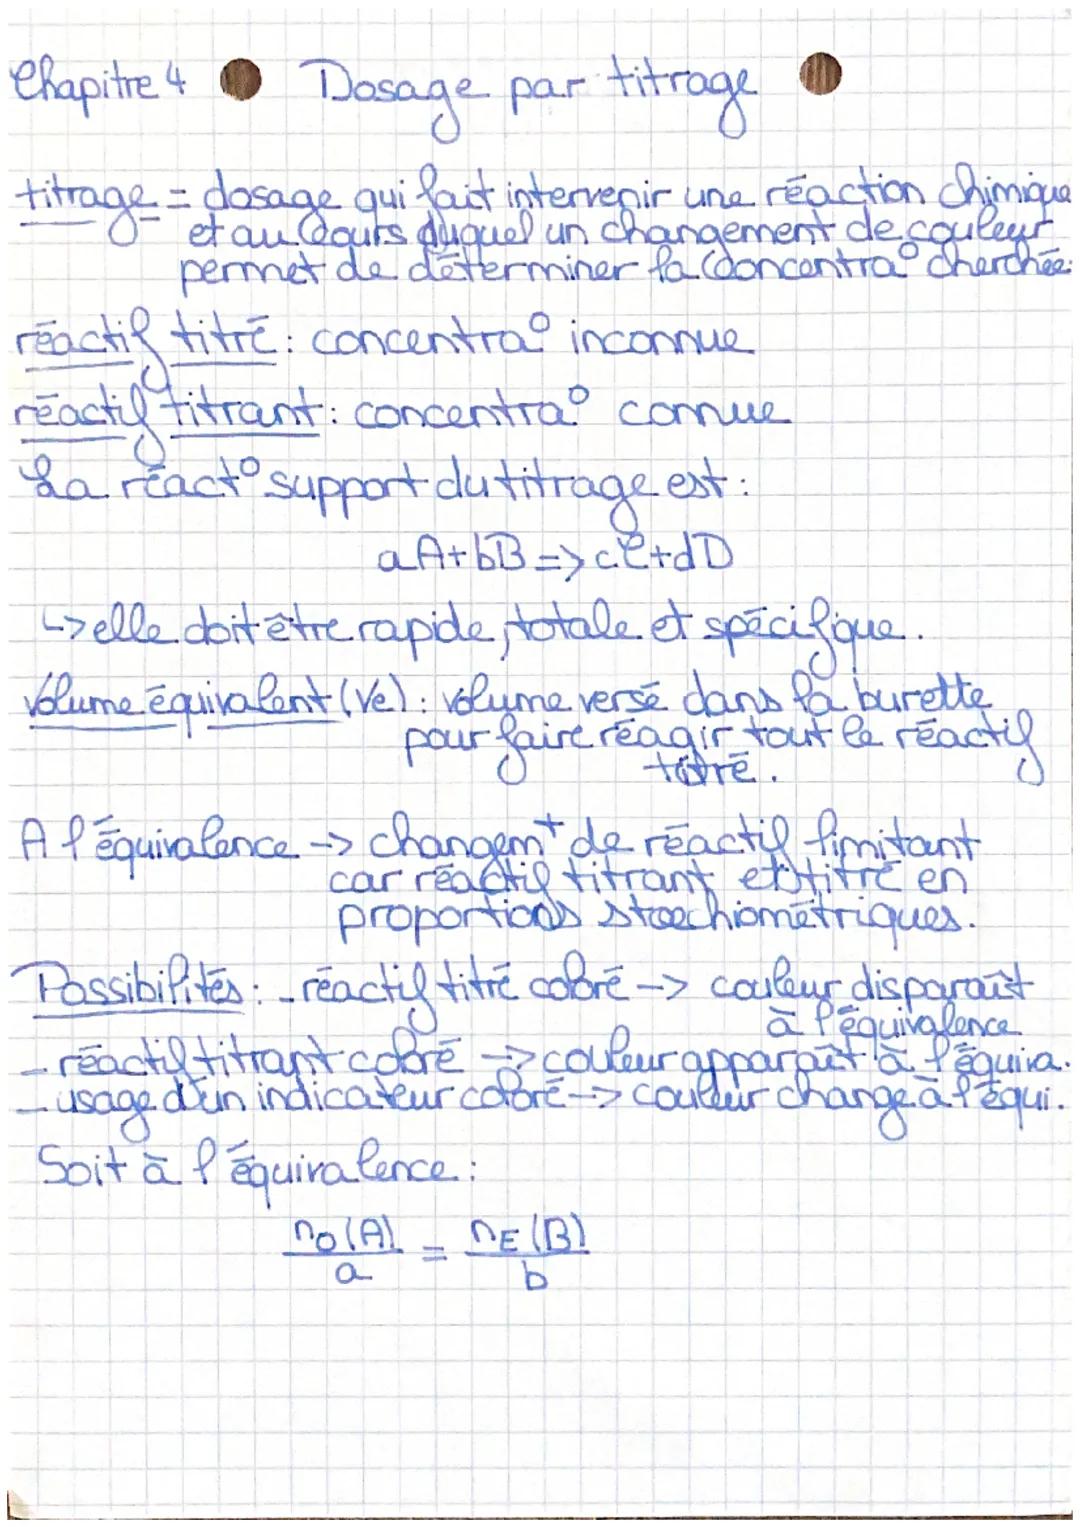 Chapitre 4 Dosage par titrage
titrage = dosage qui fait intervenir une réaction chimique
et au cours duquel un changement de couleur
permet de déterminer la concentra° cherchée.
réactif titré : concentra° inconnue
réactif titrant : concentra° connue
La réact° support du titrage est :
aA+bB => cC+dD
↳ elle doit être rapide, totale et spécifique.
Volume équivalent (Ve) : volume versé dans la burette
pour faire réagir tout le réactif
titré.
A l'équivalence -> changemt de réactif limitant
car réactif titrant et titré en
proportions stoechiométriques.
Possibilités : - réactif titré coloré -> couleur disparaît
à l'équivalence
- réactif titrant coloré -> couleur apparaît à l'équiva.
- usage d'un indicateur coloré -> couleur change à l'équi.
Soit à l'équivalence :
n0(A)/a = nE(B)/b